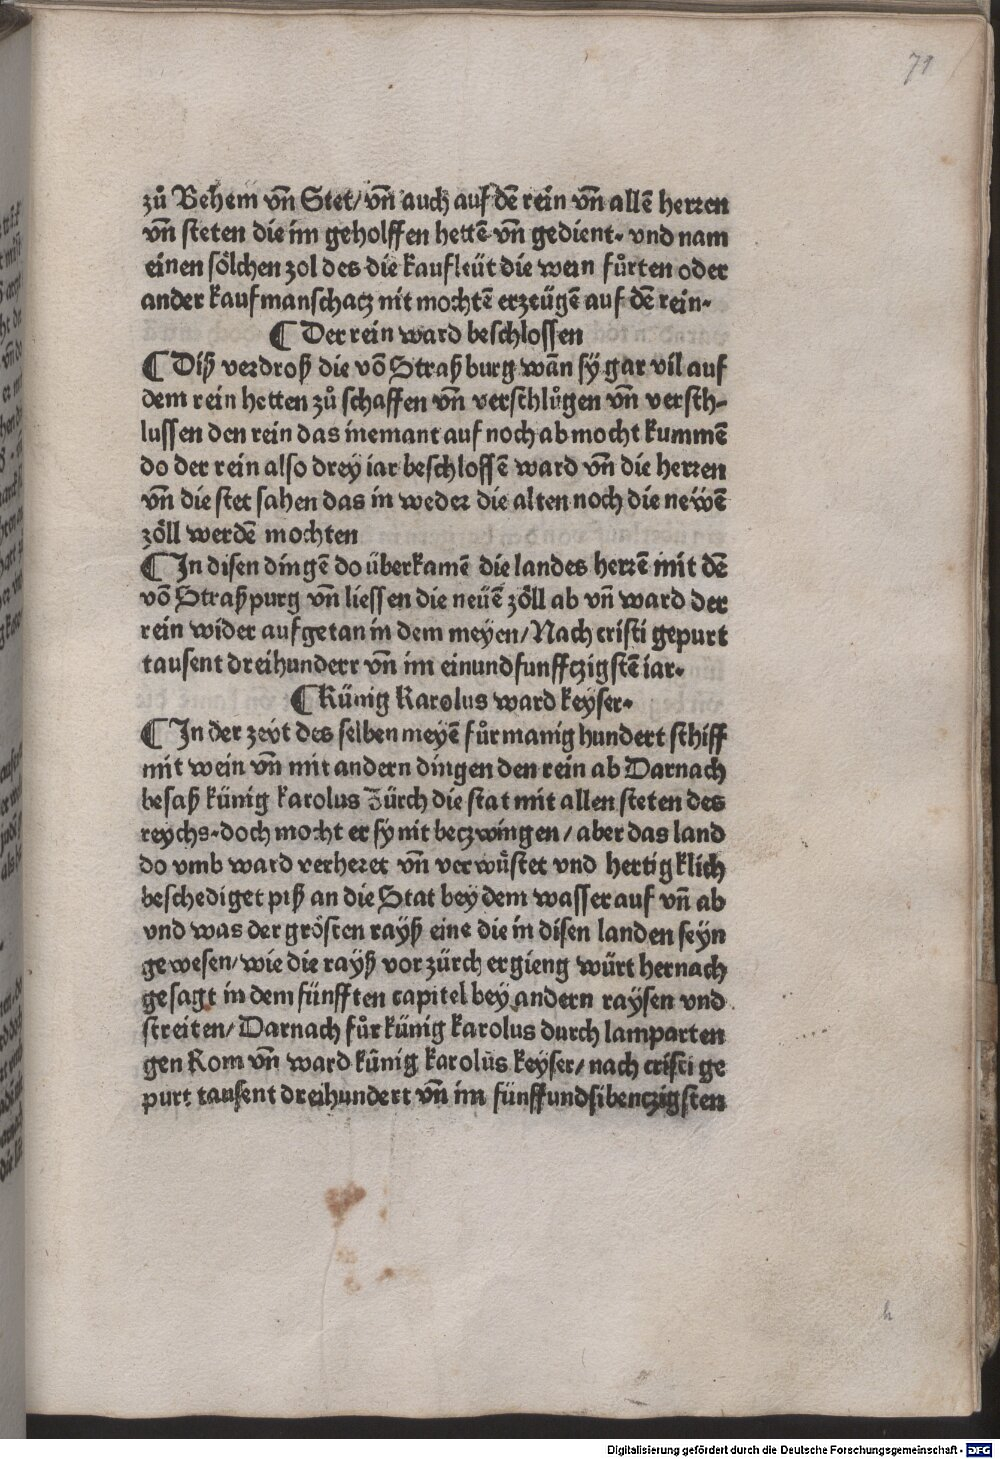 71
zů Behem vn̄ Stet/ vn̄ auch auf dē rein vn̄ allē herren
vn̄ steten die im geholffen hettē vn̄ gedient. vnd nam
einen sölchen zol des die kaufleüt die wein fůrten oder
ander kaufmanschacz nit mochtē erzeügē auf dē rein.
¶ Der rein ward beschlossen
¶ Diß verdroß die vō Straßburg wān sÿ gar vil auf
dem rein hetten zů schaffen vn̄ verschlůgen vn̄ versch-
lussen den rein das niemant auf noch ab mocht kummē
do der rein also drey iar beschlossē ward vn̄ die herren
vn̄ die stet sahen das in weder die alten noch die newē
zöll werdē mochten
¶ In disen dingē do überkamē die landes herrē mit dē
vō Straßpurg vn̄ liessen die neüē zöll ab vn̄ ward der
rein wider aufgetan in dem meyen/ Nach cristi gepurt
tausent dreihunderr vn̄ im einundfunffczigstē iar.
¶ Künig Karolus ward keyser.
¶ In der zeyt des selben meyē fůr manig hundert schiff
mit wein vn̄ mit andern dingen den rein ab Darnach
besaß künig karolus Zürch die stat mit allen steten des
reychs. doch mocht er sy nit beczwingen/ aber das land
do vmb ward verheret vn̄ verwüstet vnd hertigklich
beschediget piß an die Stat bey dem wasser auf vn̄ ab
vnd was der grösten rayß eine die in disen landen seyn
gewesen/ wie die rayß vor zürch ergieng würt hernach
gesagt in dem fünfften capitel bey andern raysen vnd
streiten/ Darnach fůr künig karolus durch lamparten
gen Rom vn̄ ward künig karolus keyser/ nach cristi ge
purt tausent dreihundert vn̄ im fünffundsibenczigsten
h
Digitalisierung gefördert durch die Deutsche Forschungsgemeinschaft - DFG